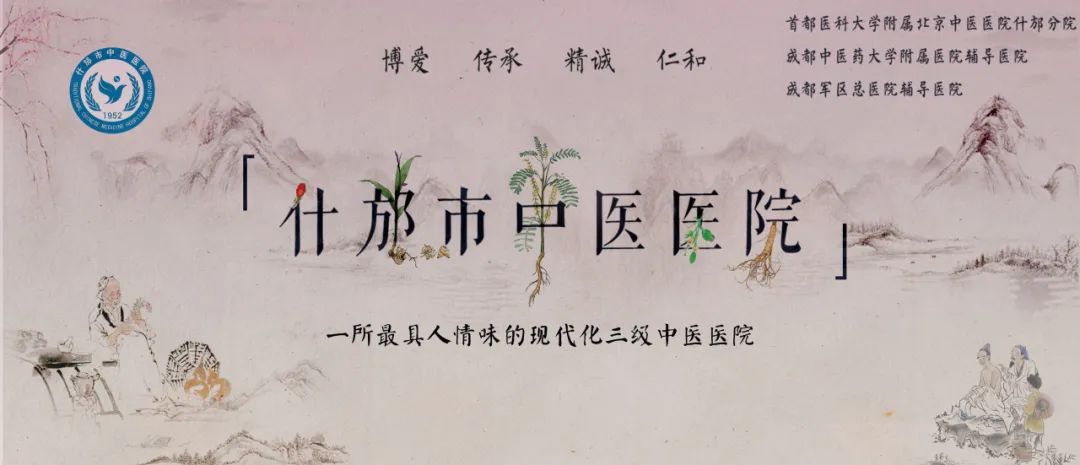 什邡市中医医院
1952
博爱 传承 精诚 仁和
首都医科大学附属北京中医医院什邡分院
成都中医药大学附属医院辅导医院
成都军区总医院辅导医院
「什邡市中医医院」
一所最具人情味的现代化三级中医医院